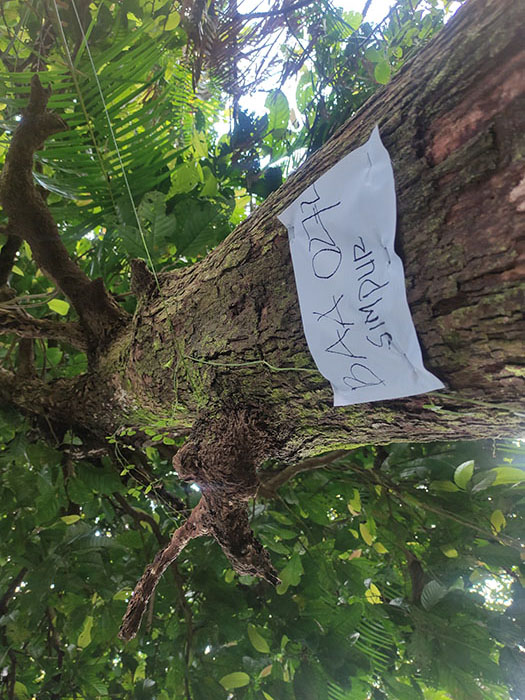 BAA 0272
SIMPUR